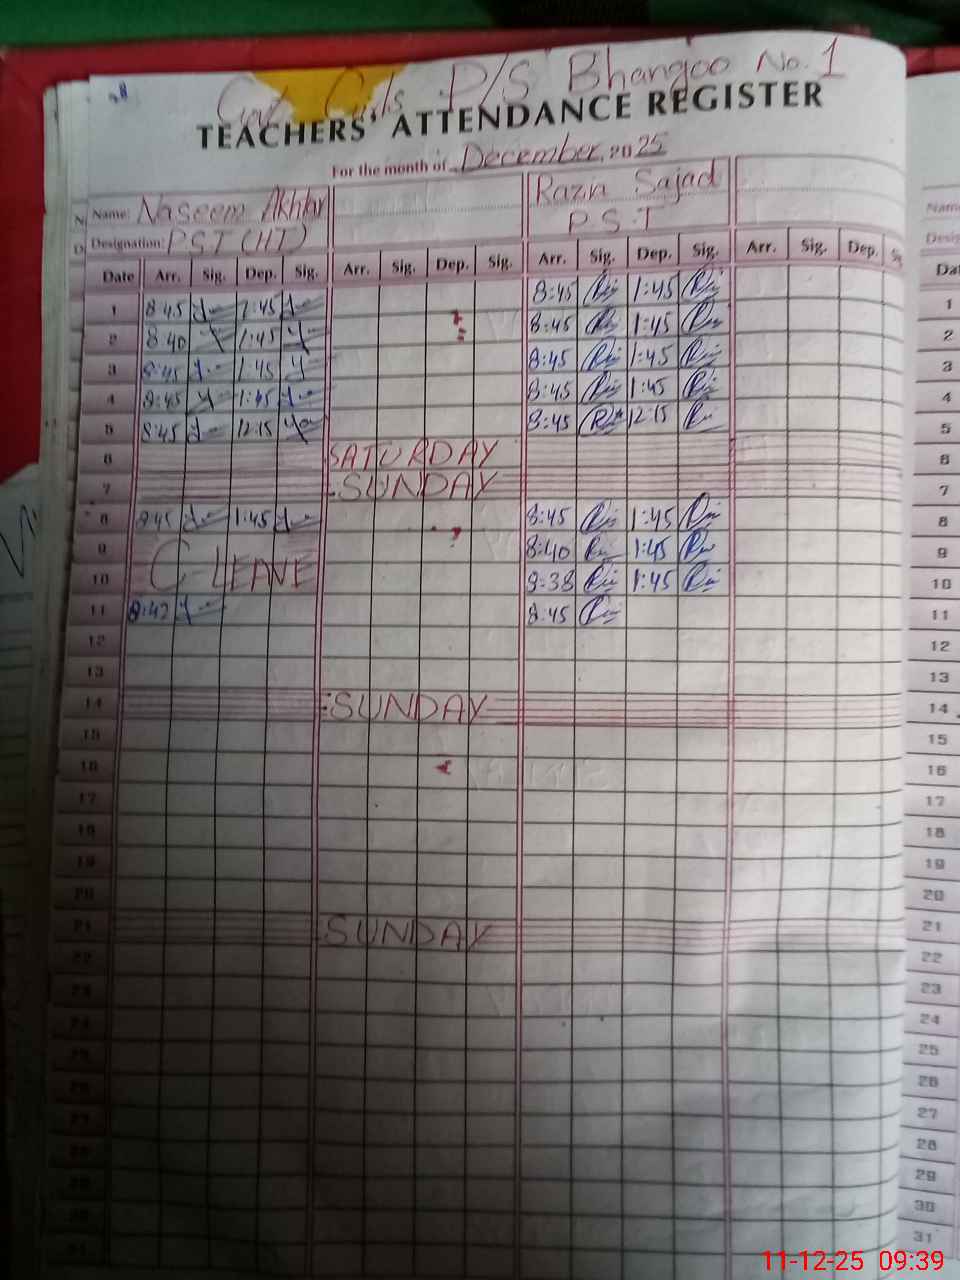 Govt. Girls P/S Bhangoo No. 1
TEACHERS' ATTENDANCE REGISTER
For the month of December, 2025
Name: Naseem Akhtar Razia Sajad
Designation: P.S.T (HT) P.S.T
Date Arr. Sig. Dep. Sig. Arr. Sig. Dep. Sig. Arr. Sig. Dep. Sig. Arr. Sig. Dep.
1 8:45 1:45 8:45 1:45 1
2 8:40 1:45 8:45 1:45 2
3 8:45 1:45 8:45 1:45 3
4 8:45 1:45 8:45 1:45 4
5 8:45 12:15 8:45 12:15 5
6 SATURDAY 6
7 SUNDAY 7
8 8:45 1:45 8:45 1:45 8
9 C-LEAVE 8:40 1:45 9
10 8:38 1:45 10
11 8:42 8:45 11
12 12
13 13
14 SUNDAY 14
15 15
16 16
17 17
18 18
19 19
20 20
21 SUNDAY 21
22 22
23 23
24 24
25 25
26 26
27 27
28 28
29 29
30 30
31 31
11-12-25 09:39